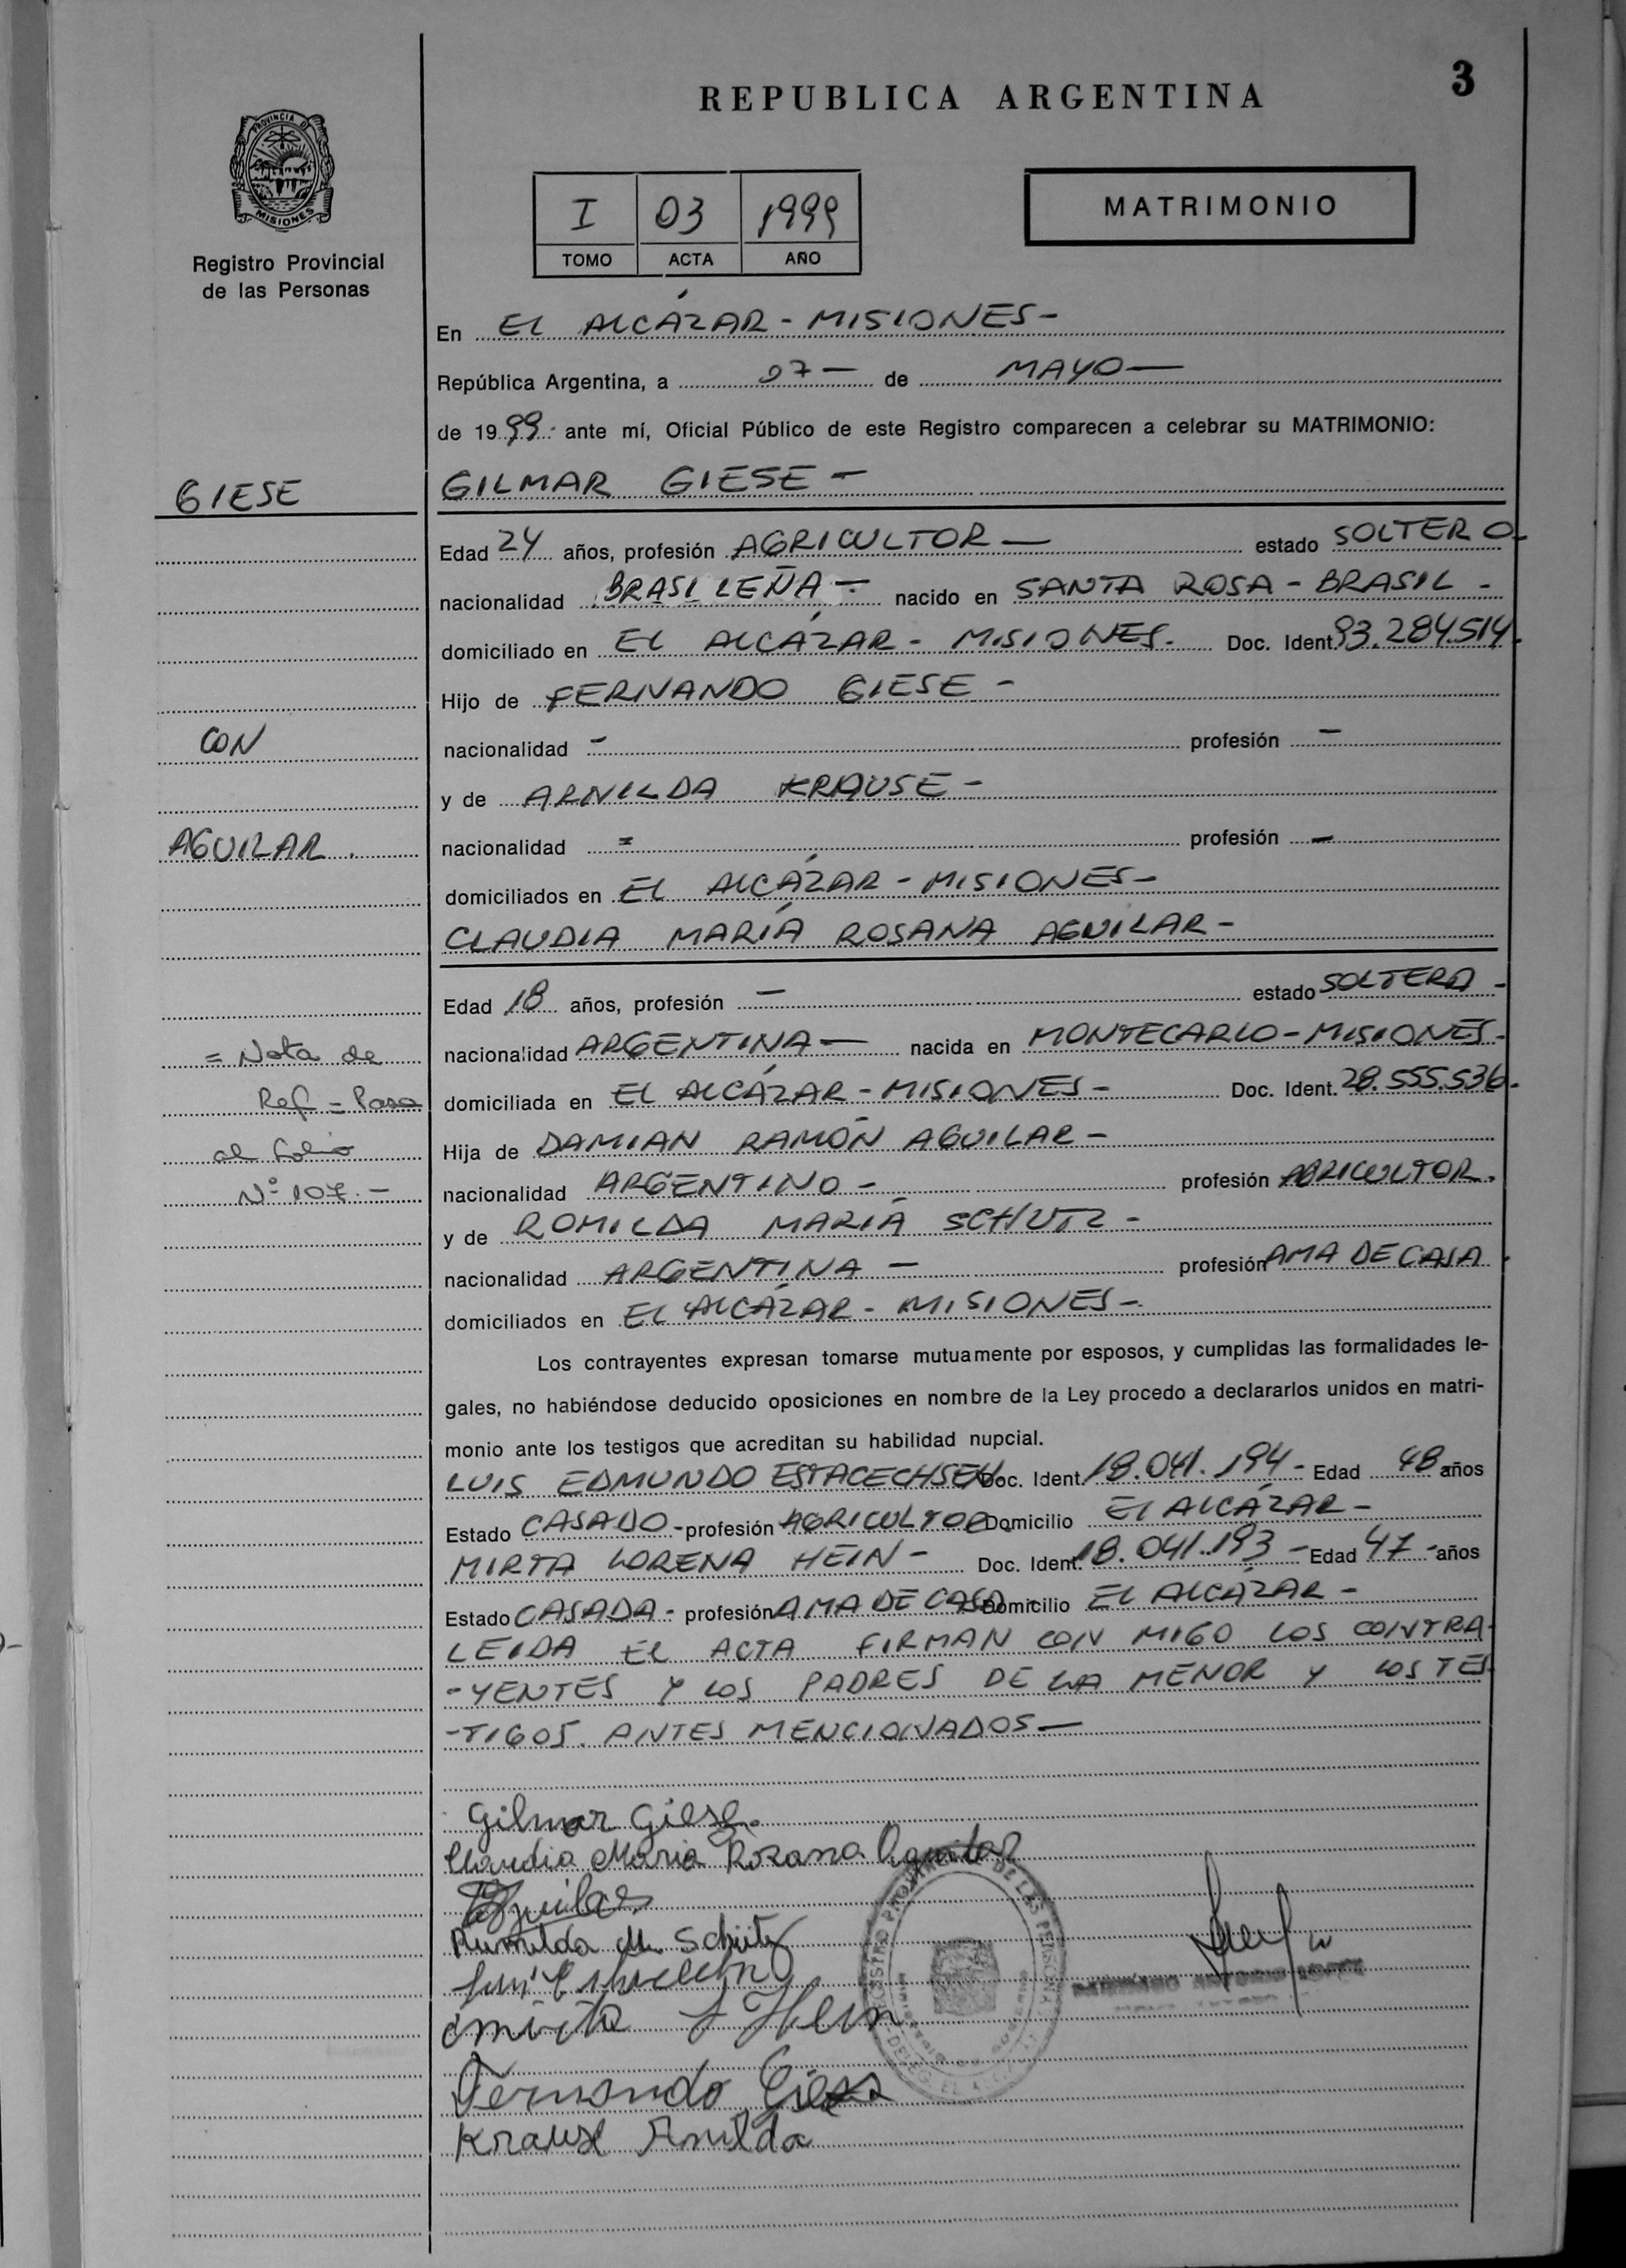 REPUBLICA ARGENTINA
3
PROVINCIA DE
MISIONES
Registro Provincial
de las Personas
I 03 1999
TOMO ACTA AÑO
MATRIMONIO
En EL ALCÁZAR - MISIONES -
República Argentina, a 07 — de MAYO —
de 1999.- ante mí, Oficial Público de este Registro comparecen a celebrar su MATRIMONIO:
GIESE
GILMAR GIESE -
Edad 24 años, profesión AGRICULTOR — estado SOLTERO-
nacionalidad BRASILEÑA - nacido en SANTA ROSA - BRASIL -
domiciliado en EL ALCÁZAR - MISIONES - Doc. Ident. 93.284.514-
Hijo de FERNANDO GIESE -
CON
nacionalidad - profesión -
y de ARNILDA KRAUSE -
AGUILAR.
nacionalidad = profesión -
domiciliados en EL ALCÁZAR - MISIONES -
CLAUDIA MARÍA ROSANA AGUILAR -
Edad 18 años, profesión - estado SOLTERA -
= Nota de
nacionalidad ARGENTINA — nacida en MONTECARLO - MISIONES -
Ref = Pasa
domiciliada en EL ALCÁZAR - MISIONES - Doc. Ident. 28.555.536-
al folio
Hija de DAMIAN RAMÓN AGUILAR -
Nº 107.-
nacionalidad ARGENTINO - profesión AGRICULTOR.
y de ROMILDA MARÍA SCHUTZ -
nacionalidad ARGENTINA — profesión AMA DE CASA
domiciliados en EL ALCÁZAR - MISIONES -
Los contrayentes expresan tomarse mutuamente por esposos, y cumplidas las formalidades le-
gales, no habiéndose deducido oposiciones en nombre de la Ley procedo a declararlos unidos en matri-
monio ante los testigos que acreditan su habilidad nupcial.
LUIS EDMUNDO Doc. Ident. 18.041.194- Edad 48 años
Estado CASADO - profesión AGRICULTOR Domicilio EL ALCÁZAR -
MIRTA LORENA HEIN - Doc. Ident. 18.041.193 - Edad 47 - años
Estado CASADA - profesión AMA DE CASA Domicilio EL ALCÁZAR -
LEIDA EL ACTA FIRMAN CON MIGO LOS CONTRA-
-YENTES Y LOS PADRES DE LA MENOR Y LOS TES
-TIGOS. ANTES MENCIONADOS —
Gilmar Giese.
Claudia Maria Rosana Aguilar
Aguilar
Rumilda M. Schütz
Mirta L Hein
Fernando Giese
Krause Arnilda
REGISTRO PROVINCIAL DE LAS PERSONAS